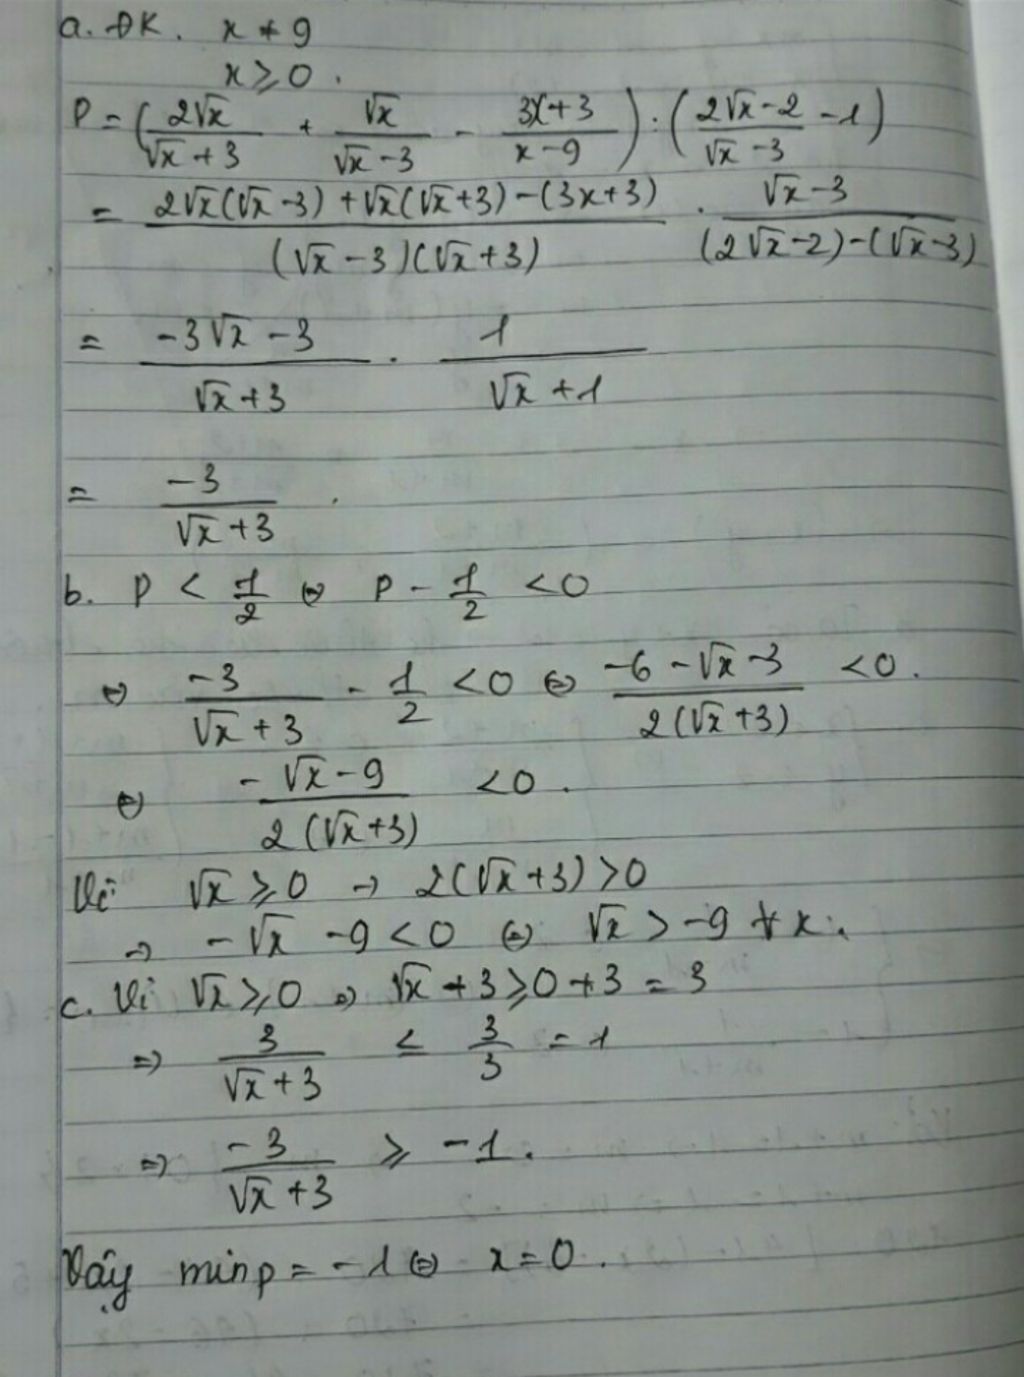 a. ĐK. x ≠ 9
x ≥ 0.
P = (2√x/(√x + 3) + √x/(√x - 3) - (3x + 3)/(x - 9)) : ((2√x - 2)/(√x - 3) - 1)
= (2√x(√x - 3) + √x(√x + 3) - (3x + 3))/((√x - 3)(√x + 3)) . (√x - 3)/((2√x - 2) - (√x - 3))
= (-3√x - 3)/(√x + 3) . 1/(√x + 1)
= -3/(√x + 3) .
b. P < 1/2 ⇔ P - 1/2 < 0
⇔ -3/(√x + 3) - 1/2 < 0 ⇔ (-6 - √x - 3)/(2(√x + 3)) < 0.
⇔ (-√x - 9)/(2(√x + 3)) < 0.
Vì √x ≥ 0 → 2(√x + 3) > 0
→ -√x - 9 < 0 ⇔ √x > -9 ∀x.
c. Vì √x ≥ 0 ⇒ √x + 3 ≥ 0 + 3 = 3
⇒ 3/(√x + 3) ≤ 3/3 = 1
⇒ -3/(√x + 3) ≥ -1.
Vậy min p = -1 ⇔ x = 0.